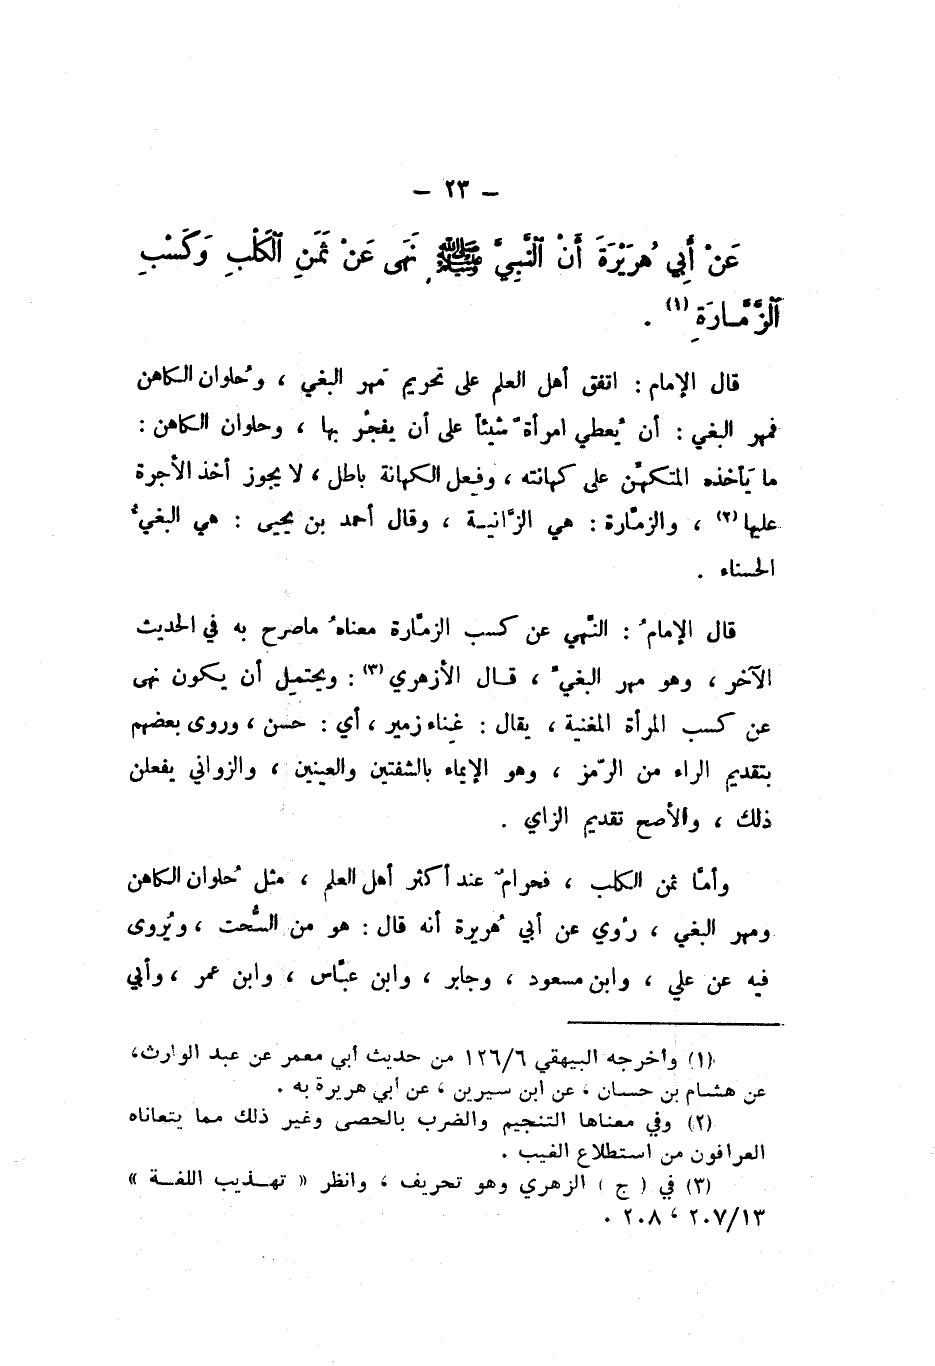 – ٢٣ –
عَنْ أَبِي هُرَيْرَةَ أَنَّ ٱلنَّبِيَّ ﷺ نَهَى عَنْ ثَمَنِ ٱلْكَلْبِ وَكَسْبِ
ٱلزَّمَّارَةِ (١) .
قال الإمام : اتفق أهل العلم على تحريم مَهر البغي ، وحُلوان الكاهن
فمهر البغي : أن يُعطي امرأةً شيئاً على أن يفجُر بها ، وحلوان الكاهن :
ما يَأخذه المتكهِّن على كهانته ، وفعل الكهانة باطل ، لا يجوز أخذ الأجرة
عليها (٢) ، والزمَّارة : هي الزَّانيـة ، وقال أحمد بن يحيى : هي البغيُّ
الحسناء .
قال الإمامُ : النَّهي عن كسب الزمَّارة معناهُ ماصرح به في الحديث
الآخر ، وهو مهر البغيِّ ، قـال الأزهري (٣) : ويحتمل أن يكون نهى
عن كسب المرأة المغنية ، يقال : غِناء زمير ، أي : حسن ، وروى بعضهم
بتقديم الراء من الرَّمز ، وهو الإيماء بالشفتين والعينين ، والزواني يفعلن
ذلك ، والأصح تقديم الزاي .
وأمَّا ثمن الكلب ، فحرامٌ عند أكثر أهل العلم ، مثل حُلوان الكاهن
ومهر البغي ، رُوي عن أبي هُريرة أنه قال : هو من السُّحت ، ويُروى
فيه عن علي ، وابن مسعود ، وجابر ، وابن عبَّاس ، وابن عمر ، وأبي
(١) وأخرجه البيهقي ١٢٦/٦ من حديث أبي معمر عن عبد الوارث،
عن هشام بن حسان ، عن ابن سيرين ، عن أبي هريرة به .
(٢) وفي معناها التنجيم والضرب بالحصى وغير ذلك مما يتعاناه
العرافون من استطلاع الغيب .
(٣) في ( ج ) الزهري وهو تحريف ، وانظر « تهـذيب اللغـة »
٢٠٧/١٣ ، ٢٠٨ .